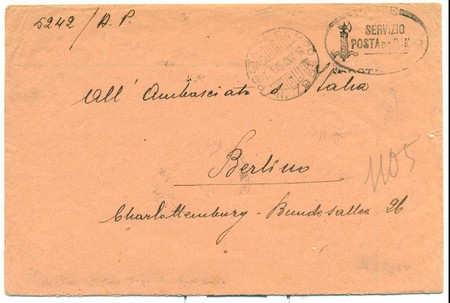 5242/A.P.
SERVIZIO
POSTA
All'Ambasciata d'Italia
Berlino
1105
Charlottenburg - Bundesallee 26